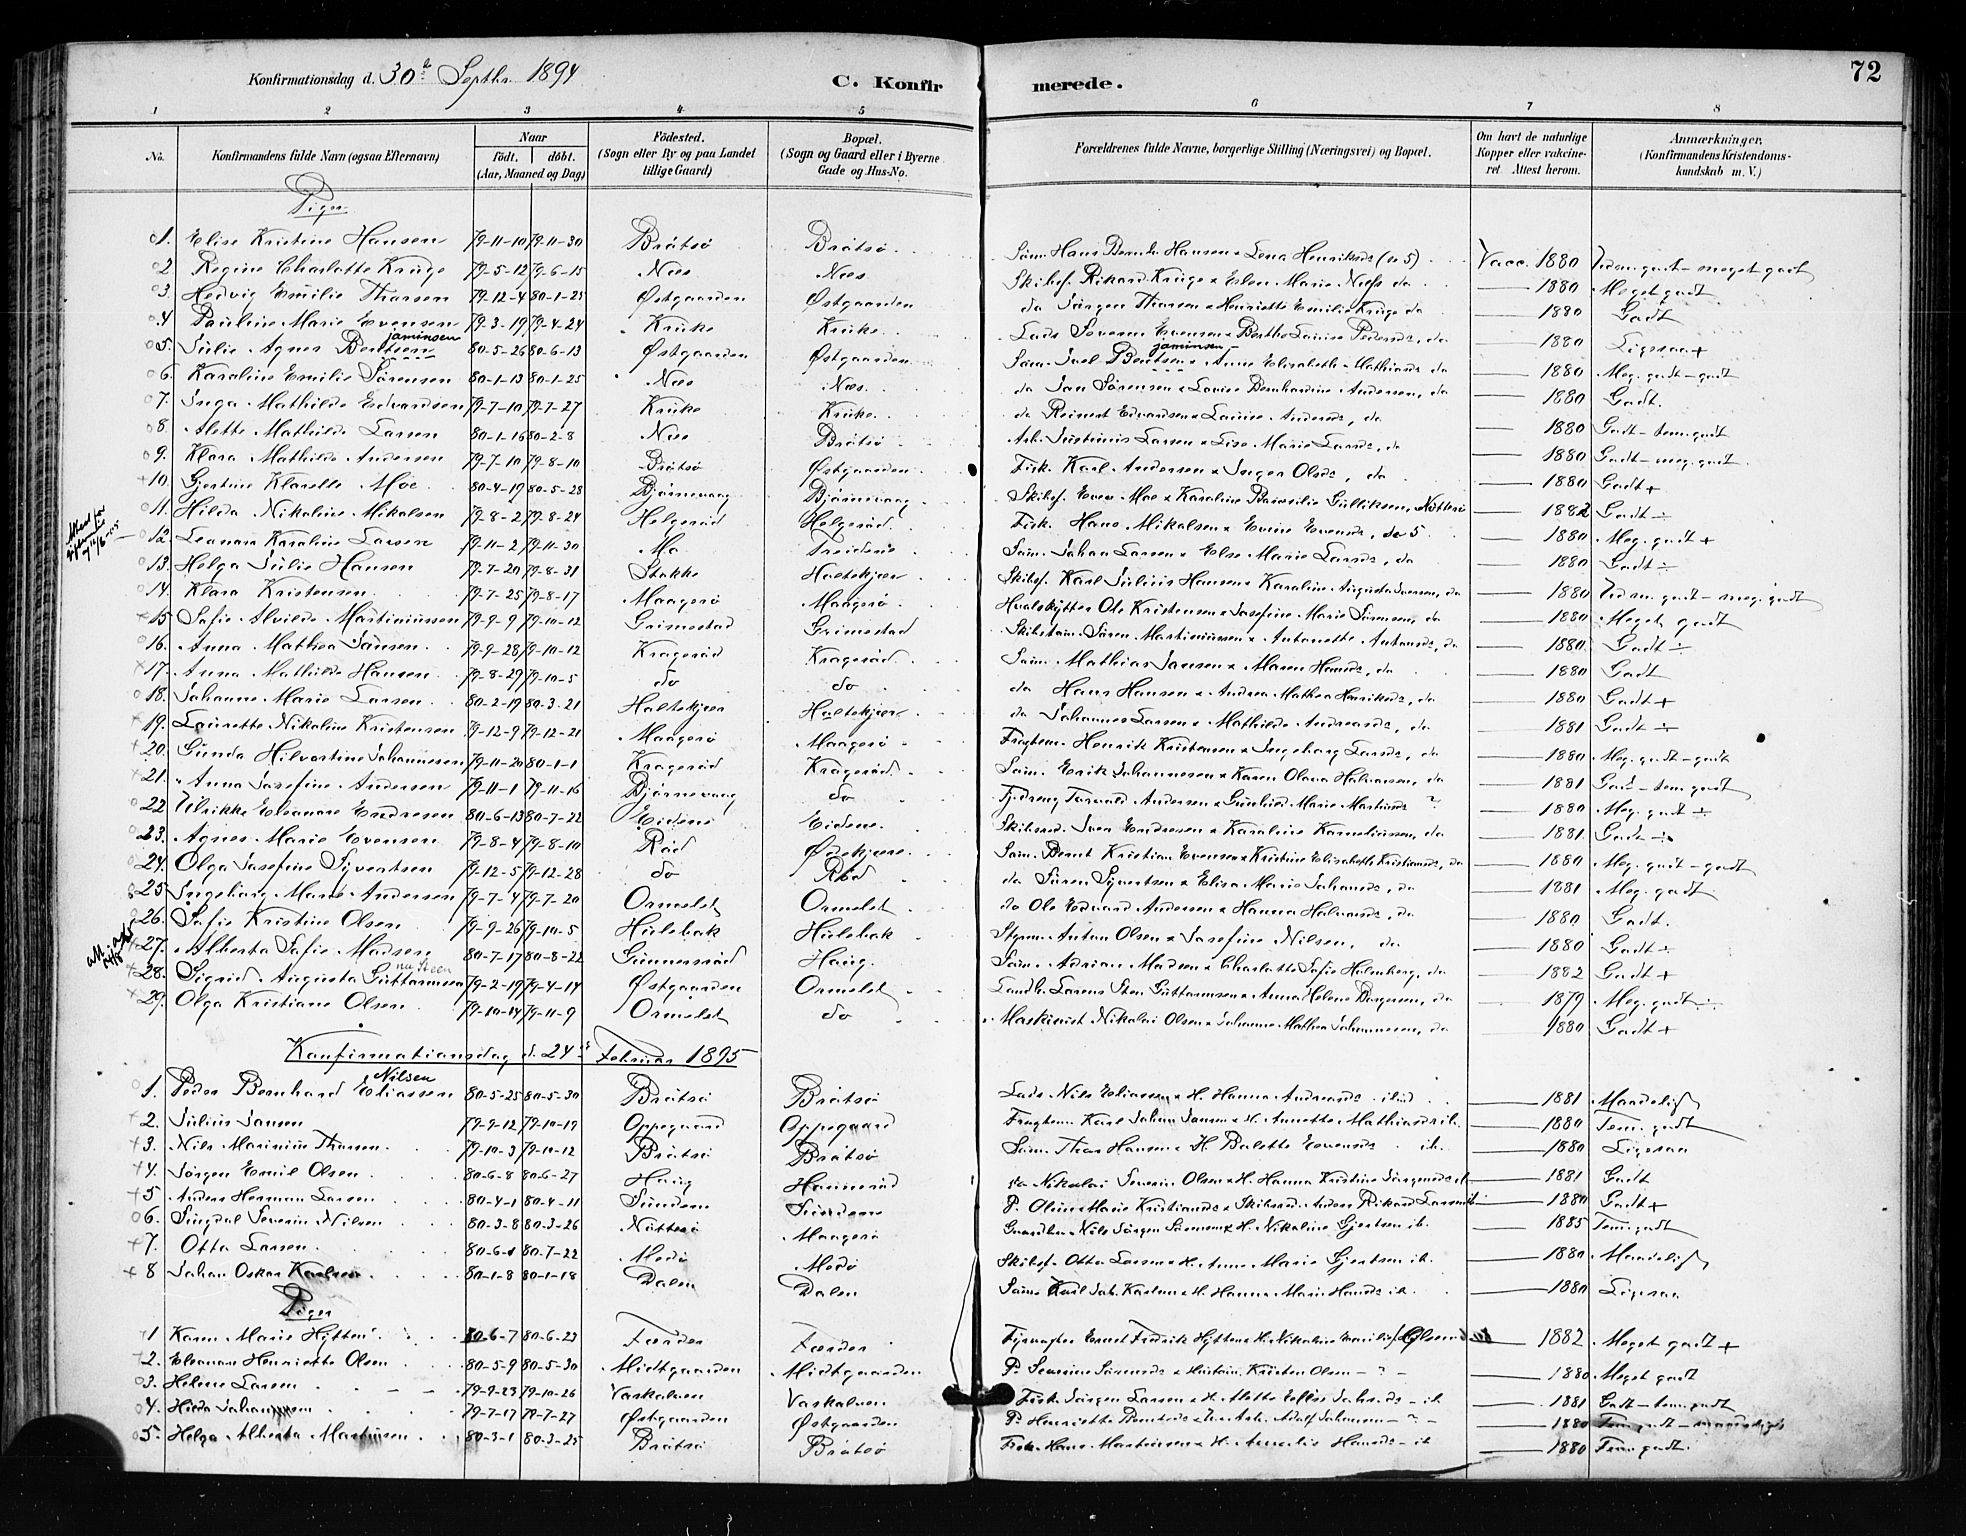 Konfirmationsdag d. 30te Septbr 1894 C. Konfirmerede. 72
1 2 3 4 5 6 7 8
No. Konfirmandens fulde Navn (ogsaa Efternavn) Naar födt. döbt. (Aar, Maaned og Dag) Födested. (Sogn eller By og paa Landet tillige Gaard) Bopæl. (Sogn og Gaard eller i Byerne Gade og Hus-No. Forældrenes fulde Navne, borgerlige Stilling (Næringsvei) og Bopæl. Om havt de naturlige Kopper eller vakcineret. Attest herom. Anmærkninger. (Konfirmandens Kristendomskundskab m. V.)
Piger
1. Elise Kristine Hansen 79-11-10 79-11-30 Bråtsö Bråtsö Söm. Hans Bernh. Hansen x Lena Henriksd. Vacc. 1880 Udm. godt - meget godt
2 Regine Charlotte Kruge 79-5-12 79-6-15 Næs Næs Skibsf. Rikard Kruge x Elen Marie Nilsd. do 1880 Meget godt
3. Hedvig Emilie Thorsen 79-12-4 80-1-25 Østgaarden Østgaarden do Jörgen Thorsen x Henriette Emilie Kruge do 1880 Godt
4 Pauline Marie Evensen 79-3-19 79-4-24 Kruke Kruke Lods Severin Evensen x Berthe Louise Pedersd., do 1880 Ligesaa +
5. Julie Agnes Bentsen jaminsen 80-5-26 80-6-13 Østgaarden Østgaarden Söm. Juel Bentsen jaminsen x Anne Elisabeth Mathiasd. do 1880 Meg. godt - godt
6. Karoline Emilie Sörensen 80-1-13 80-1-25 Næs Næs do Jan Sörensen x Lovise Bernhardine Andersen, do 1880 Godt.
7. Inga Mathilde Edvardsen 79-7-10 79-7-27 Kruke Kruke do Reinert Edvardsen x Lovise Andersd., do 1880 Godt - tem. godt
8. Alette Mathilde Larsen 80-1-16 80-2-8 Næs Bråtsö Arb. Justinus Larsen x Lise Marie Larsd., do 1880 Godt - meg. godt
9. Klara Mathilde Andersen 79-7-10 79-8-10 Bråtsö Østgaarden Fisk. Karl Andersen x Inger Olsd., do 1880 Godt +
10. Gjertine Klarette Moe 80-4-19 80-5-28 Björnevaag Björnevaag Skibsf. Even Moe x Karoline Gulliksen, Nötterö 1882 Godt ÷
11. Hilda Nikoline Mikalsen 79-8-2 79-8-24 Helgeröd Helgeröd Fisk. Hans Mikalsen x Evine Evensd., do 5 1880 Meg. godt +
12. Leonore Karoline Larsen 79-11-2 79-11-30 Mo Treidene Söm. Johan Larsen x Else Marie Larsd., do 1880 Godt ÷
13. Helga Julie Hansen 79-7-20 79-8-31 Stokke Holtekjær Skibsf. Karl Julius Hansen x Karoline Augusta Iversen, do 1880 Udm. godt - meg. godt
14. Klara Kristensen 79-7-25 79-8-17 Maagerö Maagerö Hvalskytter Ole Kristensen x Josefine Marie Sörensen, do 1880 Meget godt
15 Sofie Alvilde Martiniussen 79-9-9 79-10-12 Grimestad Grimestad Skibstöm. Sören Martiniussen x Antonette Antonsd., do 1880 Godt ÷
16. Anna Mathea Jansen 79-9-28 79-10-12 Krageröd Krageröd Söm. Mathias Jansen x Maren Hansd., do 1880 Godt
17. Anna Mathilde Hansen 79-8-29 79-10-5 do do do Hans Hansen x Andrea Mathea Henriksd., do 1880 Godt +
18. Johanne Marie Larsen 80-2-19 80-3-21 Holtekjær Holtekjær do Johannes Larsen x Mathilde Andreasd., do 1881 Godt ÷
19. Laurette Nikoline Kristensen 79-12-9 79-12-21 Maagerö Maagerö Fragtem. Henrik Kristensen x Ingeborg Larsd., do 1880 Meg. godt - godt
20. Gunda Hilvartine Johannesen 79-11-20 80-1-1 Krageröd Krageröd Söm. Erik Johannesen x Karen Olava Halvorsen, do 1881 Godt - tem. godt
21. Anna Josefine Andersen 79-11-1 79-11-16 Björnevaag do Tjdreng Torvald Andersen x Gunhild Marie Martinsd. ? 1880 Meg. godt ÷
22 Ulrikke Eleonore Endresen 80-6-13 80-7-22 Eidene Eidene Skibsred. Iver Endresen x Karoline Korneliussen, do 1881 Godt ÷
23. Agnes Marie Evensen 79-8-4 79-8-10 Röd Ødekjære Söm. Bernt Kristian Evensen x Kristine Elisabeth Kristiansd., do 1880 Meg. godt - godt
24. Olga Josefine Syvertsen 79-12-5 79-12-28 do Röd do Sören Syvertsen x Elisa Marie Johansd., do 1881 Meg. godt
25 Ingeborg Marie Andersen 79-7-4 79-7-20 Ormelet Ormelet do Ole Edvard Andersen x Hanna Halvorsd., do 1880 Godt.
26. Sofie Kristine Olsen 79-9-26 79-10-5 Hulebak Hulebak Styrm. Anton Olsen x Josefine Nilsen, do 1880 Godt ÷
27. Alberta Sofie Madsen 80-7-17 80-8-22 Gunnersröd Haug Söm. Adrian Madsen x Charlotte Sofie Holmberg, do 1882 Godt +
28. Sigrid Augusta Guttormsen nu Steen 79-2-19 79-4-14 Østgaarden Ormelet Landh. Lorens Sten Guttormsen x Anna Helene Borgersen, do 1879 Meg. godt ÷
29. Olga Kristiane Olsen 79-10-14 79-11-9 Ormelet do Maskinist Nikolai Olsen x Johanne Mathea Johannesen, do 1880 Godt +
Konfirmationsdag d. 24de Februar 1895
1. Peder Bernhard Eliassen Nilsen 80-5-25 80-5-30 Bråtsö Bråtsö Lods Nils Eliassen x H. Hanna Andreasd. ibid 1881 Maadelig
2. Julius Jansen 79-9-12 79-10-19 Oppegaard Oppegaard Fragtem. Karl Johan Jansen x H. Annette Mathiasd. ib. 1880 Tem. godt
3. Nils Marinius Thorsen 79-10-3 79-10-12 Bråtsö Bråtsö Söm. Thor Hansen x H. Bolette Evensd. ib. 1880 Ligesaa
4. Jörgen Emil Olsen 80-6-8 80-6-27 Haug Havneröd do Nikolai Severin Olsen x H. Hanna Kristine Jörgensd. ib. 1881 Godt
5 Anders Herman Larsen 80-4-1 80-4-11 Sundene Sundene P. Oline Marie Kristiansd. x Skibsred. Anders Rikard Larsen ib. 1880 Godt +
6. Singdal Severin Nilsen 80-3-8 80-3-26 Nötterö Maagerö Gaardbr. Nils Jörgen Sörensen x H. Nikoline Gjertsen ib. 1885 Tem. godt
7. Otto Larsen 80-6-1 80-7-22 Medö Medö Skibsf. Otto Larsen x H. Anne Marie Gjertsen ib. 1880 Maadelig
8 Johan Oskar Karlsen 80-1-8 80-1-18 Dalen Dalen Söm. Karl Joh. Karlsen x H. Hanna Marie Hansd. ib. 1880 Ligesaa
Piger
1 Karen Marie Hytten 80-6-7 80-6-23 Færder Færder Fyrvogter Ernst Fredrik Hytten x H. Nikoline Emilie Olsen 1882 Meget godt +
2. Eleonore Henriette Olsen 80-5-9 80-5-30 Midtgaarden Midtgaarden P. Severine Sörensd. x Kristen Olsen - ? - 1880 Meget godt
3. Helene Larsen 79-9-23 79-10-26 Vaskalven Vaskalven Fisk. Jörgen Larsen x H. Alette Ellise Johnsd. - ib 1881 Godt - tem. godt
4. Hilda Johannesen 79-7-17 79-7-27 Østgaarden Østgaarden P. Henriette Berntsd. x Adolf Johansen - ? - 1880 Tem. godt - maadelig
5. Helga Alberta Martinsen 80-3-1 80-3-25 Bråtsö Bråtsö Fisk. Hans Martinsen x H. Amalie Hansd. - ib 1880 Tem. godt.